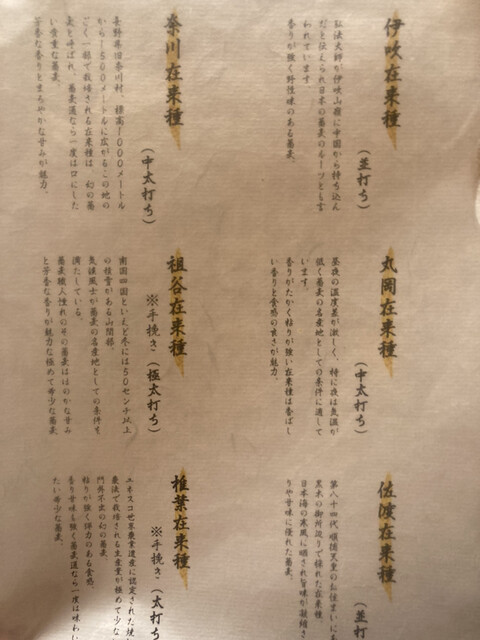 伊吹在来種
(並打ち)
弘法大師が伊吹山麓に中国から持ち込ん
だと伝えられ日本の蕎麦のルーツとも言
われています。
香りが強く野性味のある蕎麦。
奈川在来種
(中太打ち)
長野県旧奈川村、標高1000メートル
から1500メートルに広がるこの地の
ごく一部で栽培される在来種は　幻の蕎
麦と呼ばれ、蕎麦通なら一度は口にした
い貴重な蕎麦。
芳香な香りとまろやかな甘みが魅力。
丸岡在来種
(中太打ち)
昼夜の温度差が激しく、特に夜は気温が
低く蕎麦の名産地としての条件に適して
います。
香りがたかく粘りが強い在来種は香ばし
い香りと食感の良さが魅力。
祖谷在来種
※手挽き(極太打ち)
南国四国といえど冬には50センチ以上
の積雪がある山間部、
気候風土が蕎麦の名産地としての条件を
満たしている。
蕎麦職人憧れのその蕎麦はほのかな甘み
と芳香な香りが魅力な極めて希少な蕎麦
佐渡在来種
(並打
第八十四代 順徳天皇のお住まいに
黒木の御所辺りで採れた在来種
日本海の寒風に晒され旨味が凝縮さ
りや甘味に優れた蕎麦。
椎葉在来種
※手挽き(太打
ユネスコ世界農業遺産に認定された焼
農法で栽培される生産量が極めて少な
門外不出の幻の蕎麦。
粘りが強く弾力のある食感、
香り甘味も強く蕎麦通なら一度は味わい
たい希少な蕎麦。